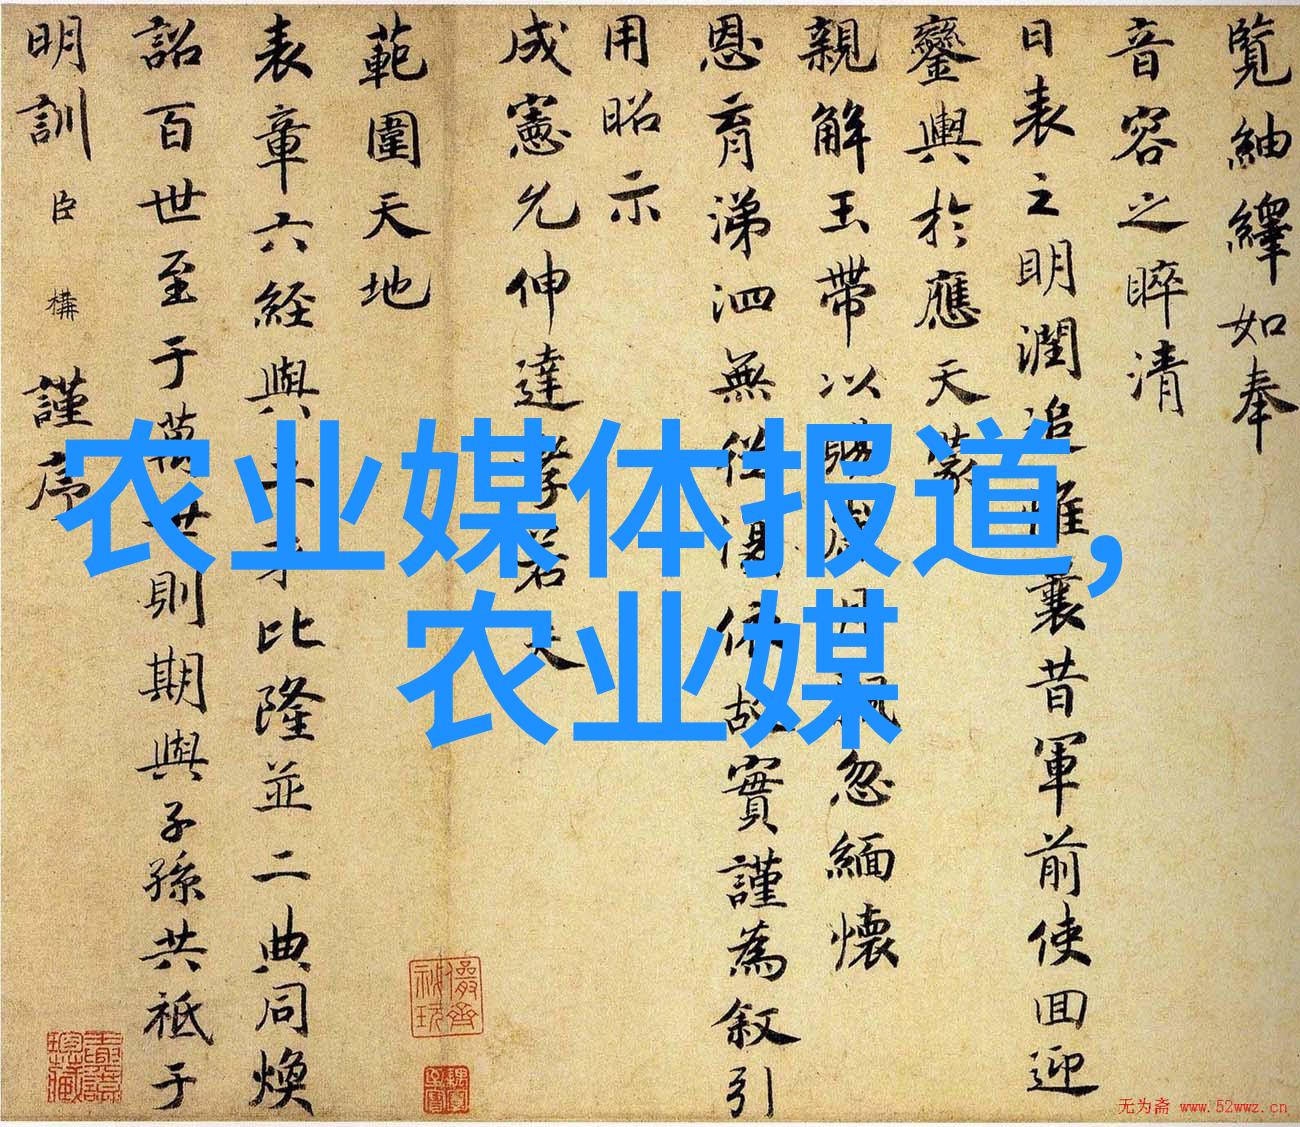 覽紬繹如奉
音容之睟清
日表之明潤追惟曩昔軍前使回迎
鑾輿於應天蒙
親解玉帶以賜歲月飄忽緬懷
恩育涕泗無從得依故實謹為叙引
用昭示
成憲允伸達孝若夫
範圍天地
表章六經與 比隆並二典同煥
詔百世至于萬世則期與子孫共祗于
明訓臣構謹序
农业媒体报道,
农业媒
无为斋 www.52wwz.cn